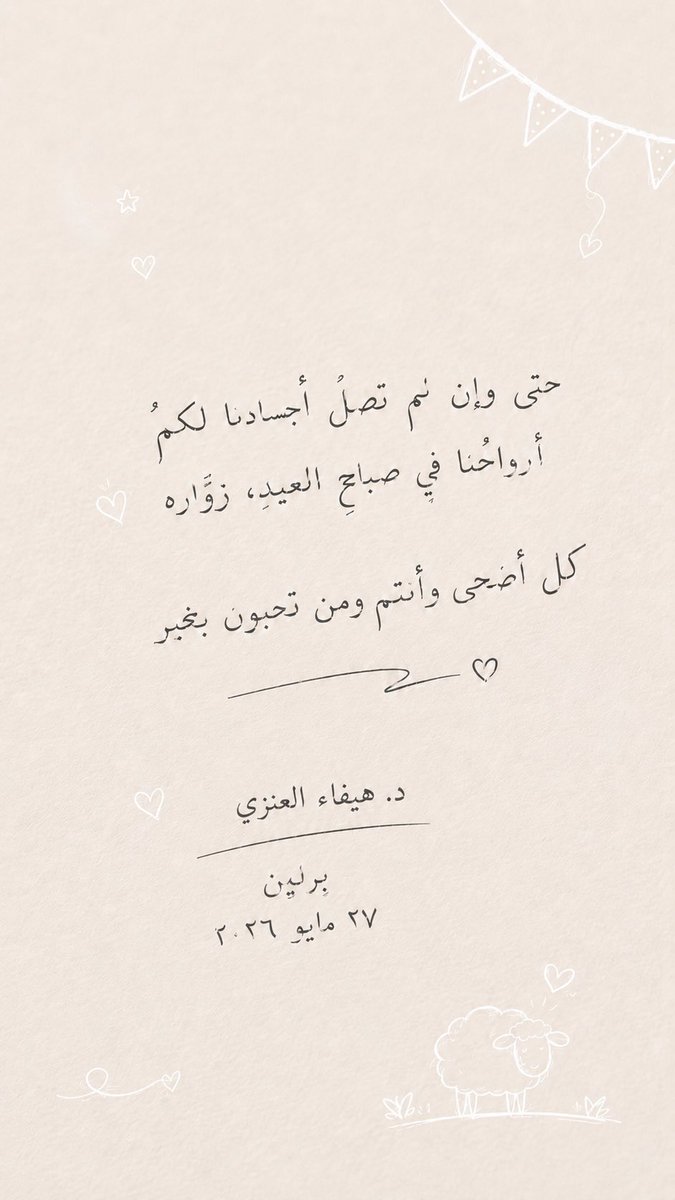 حتى وإن لم تصلُ أجسادنا لكمُ
أرواحُنا فيِ صباحِ العيدِ، زوَّاره
كل أضحى وأنتم ومن تحبون بخير
د. هيفاء العنزي
بِرلين
٢٧ مايو ٢٠٢٦